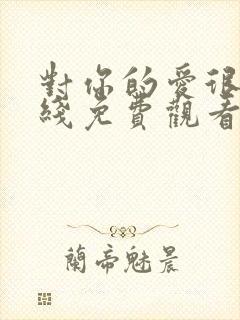 對你的愛很
綫免費觀看
蘭帝魅晨